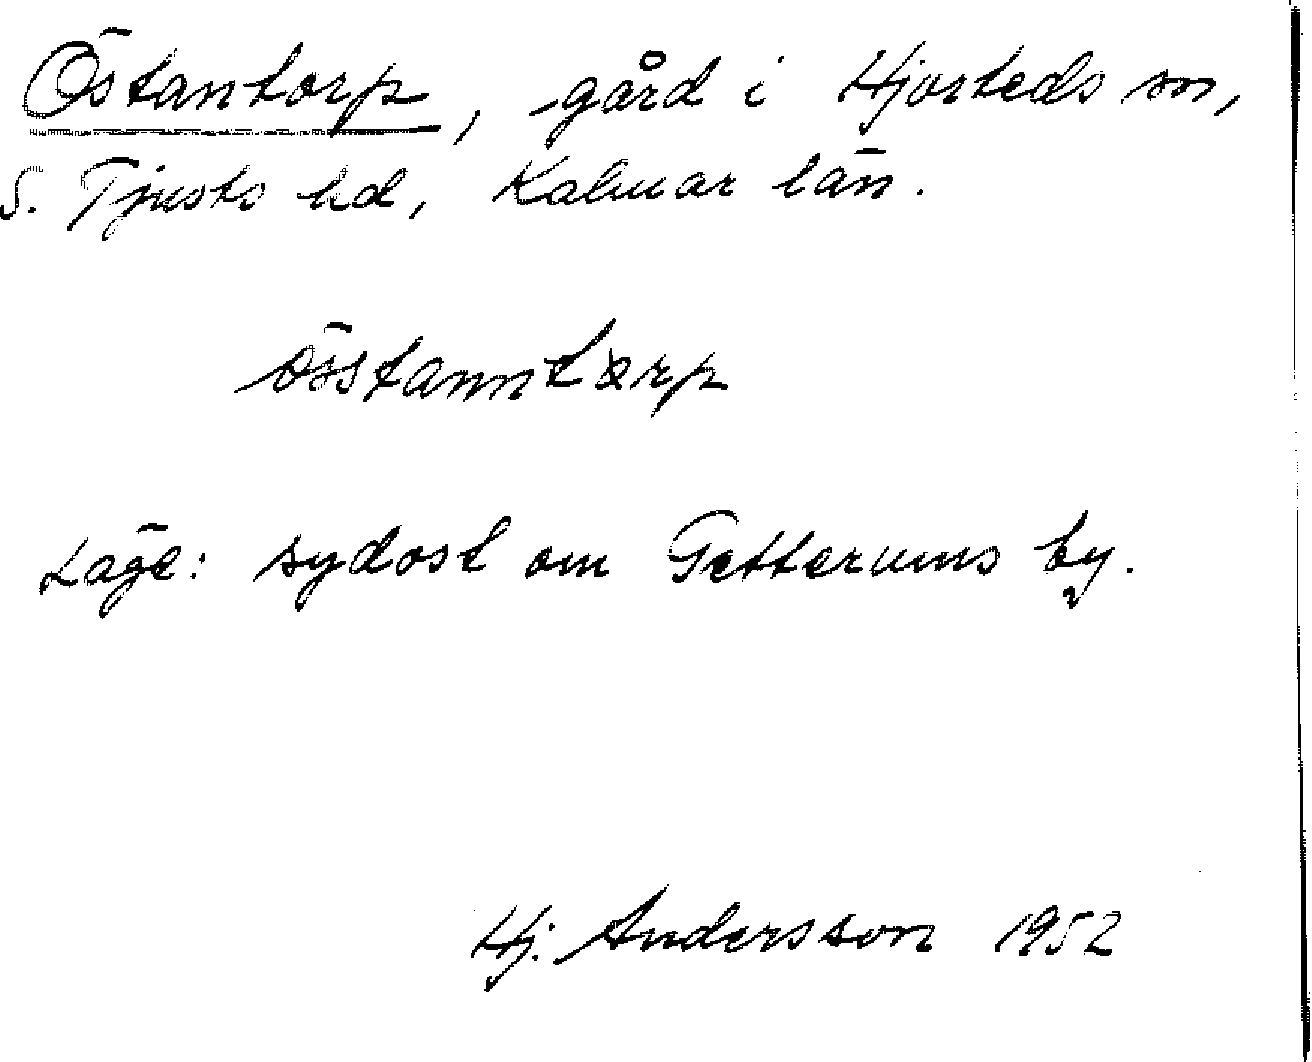 Östantorp, gård i Hjorteds sn,
S. Tjusts hd, Kalmar län.
össtanntærp
Läge: sydost om Getterums by.
Hj. Andersson 1952